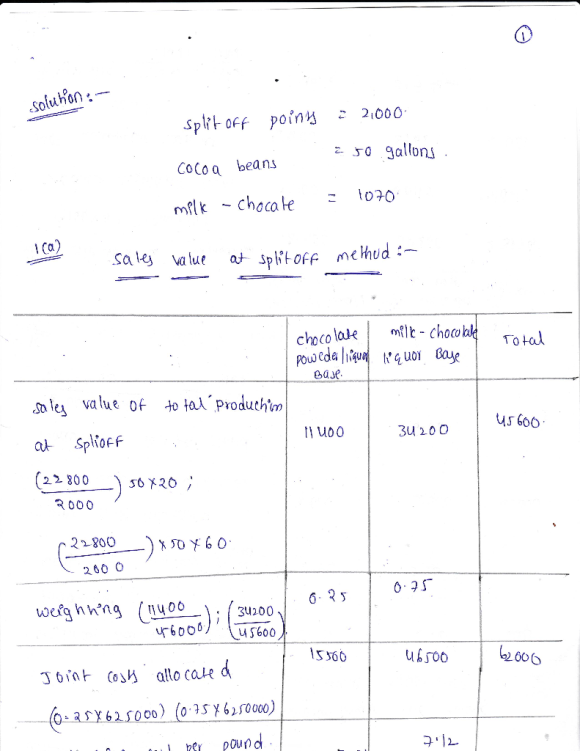 1
Solution :-
split off points = 2,000.
cocoa beans = 50 gallons.
milk - chocate = 1070.
1(a)
sales value at splitoff method :-
chocolate powder/liquor Base.
milk - chocolate liquor Base
Total
sales value of total production
at splioff
11400 34200 45600.
(22800/2000) 50×20 ;
(22800/2000) ×50×60.
weighning (11400/45600); (34200/45600)
0.25 0.75
Joint costs allocated
15500 46500 62000
(0.25×625000) (0.75×6250000)
per pound.
7.12